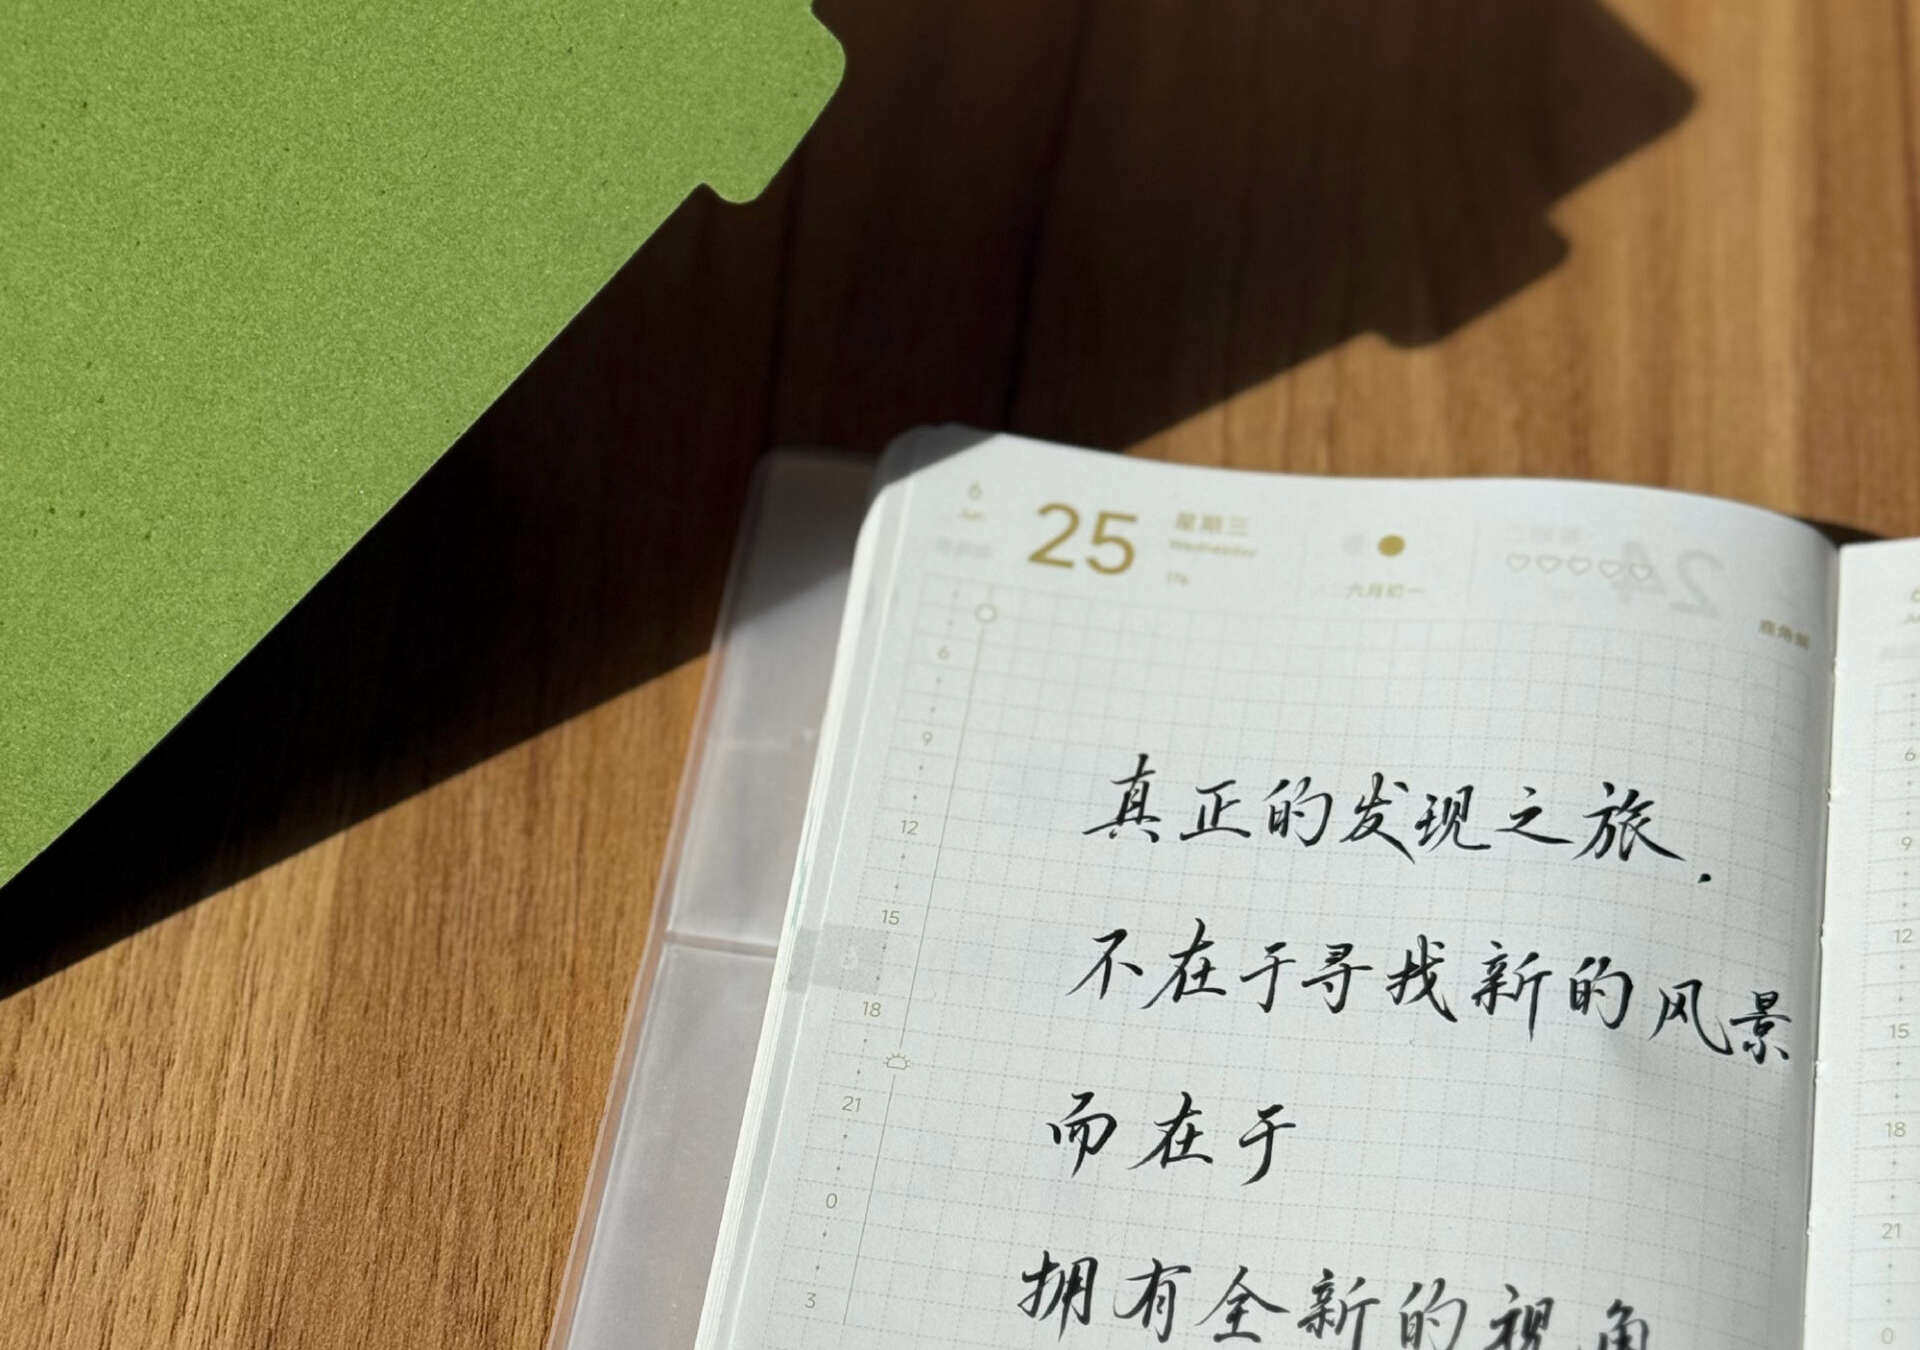 6
25
星期三
Wednesday
176
六月初一
6
9
12
15
18
21
0
3
真正的发现之旅.
不在于寻找新的风景
而在于
拥有全新的视角
6
9
12
15
18
21
0